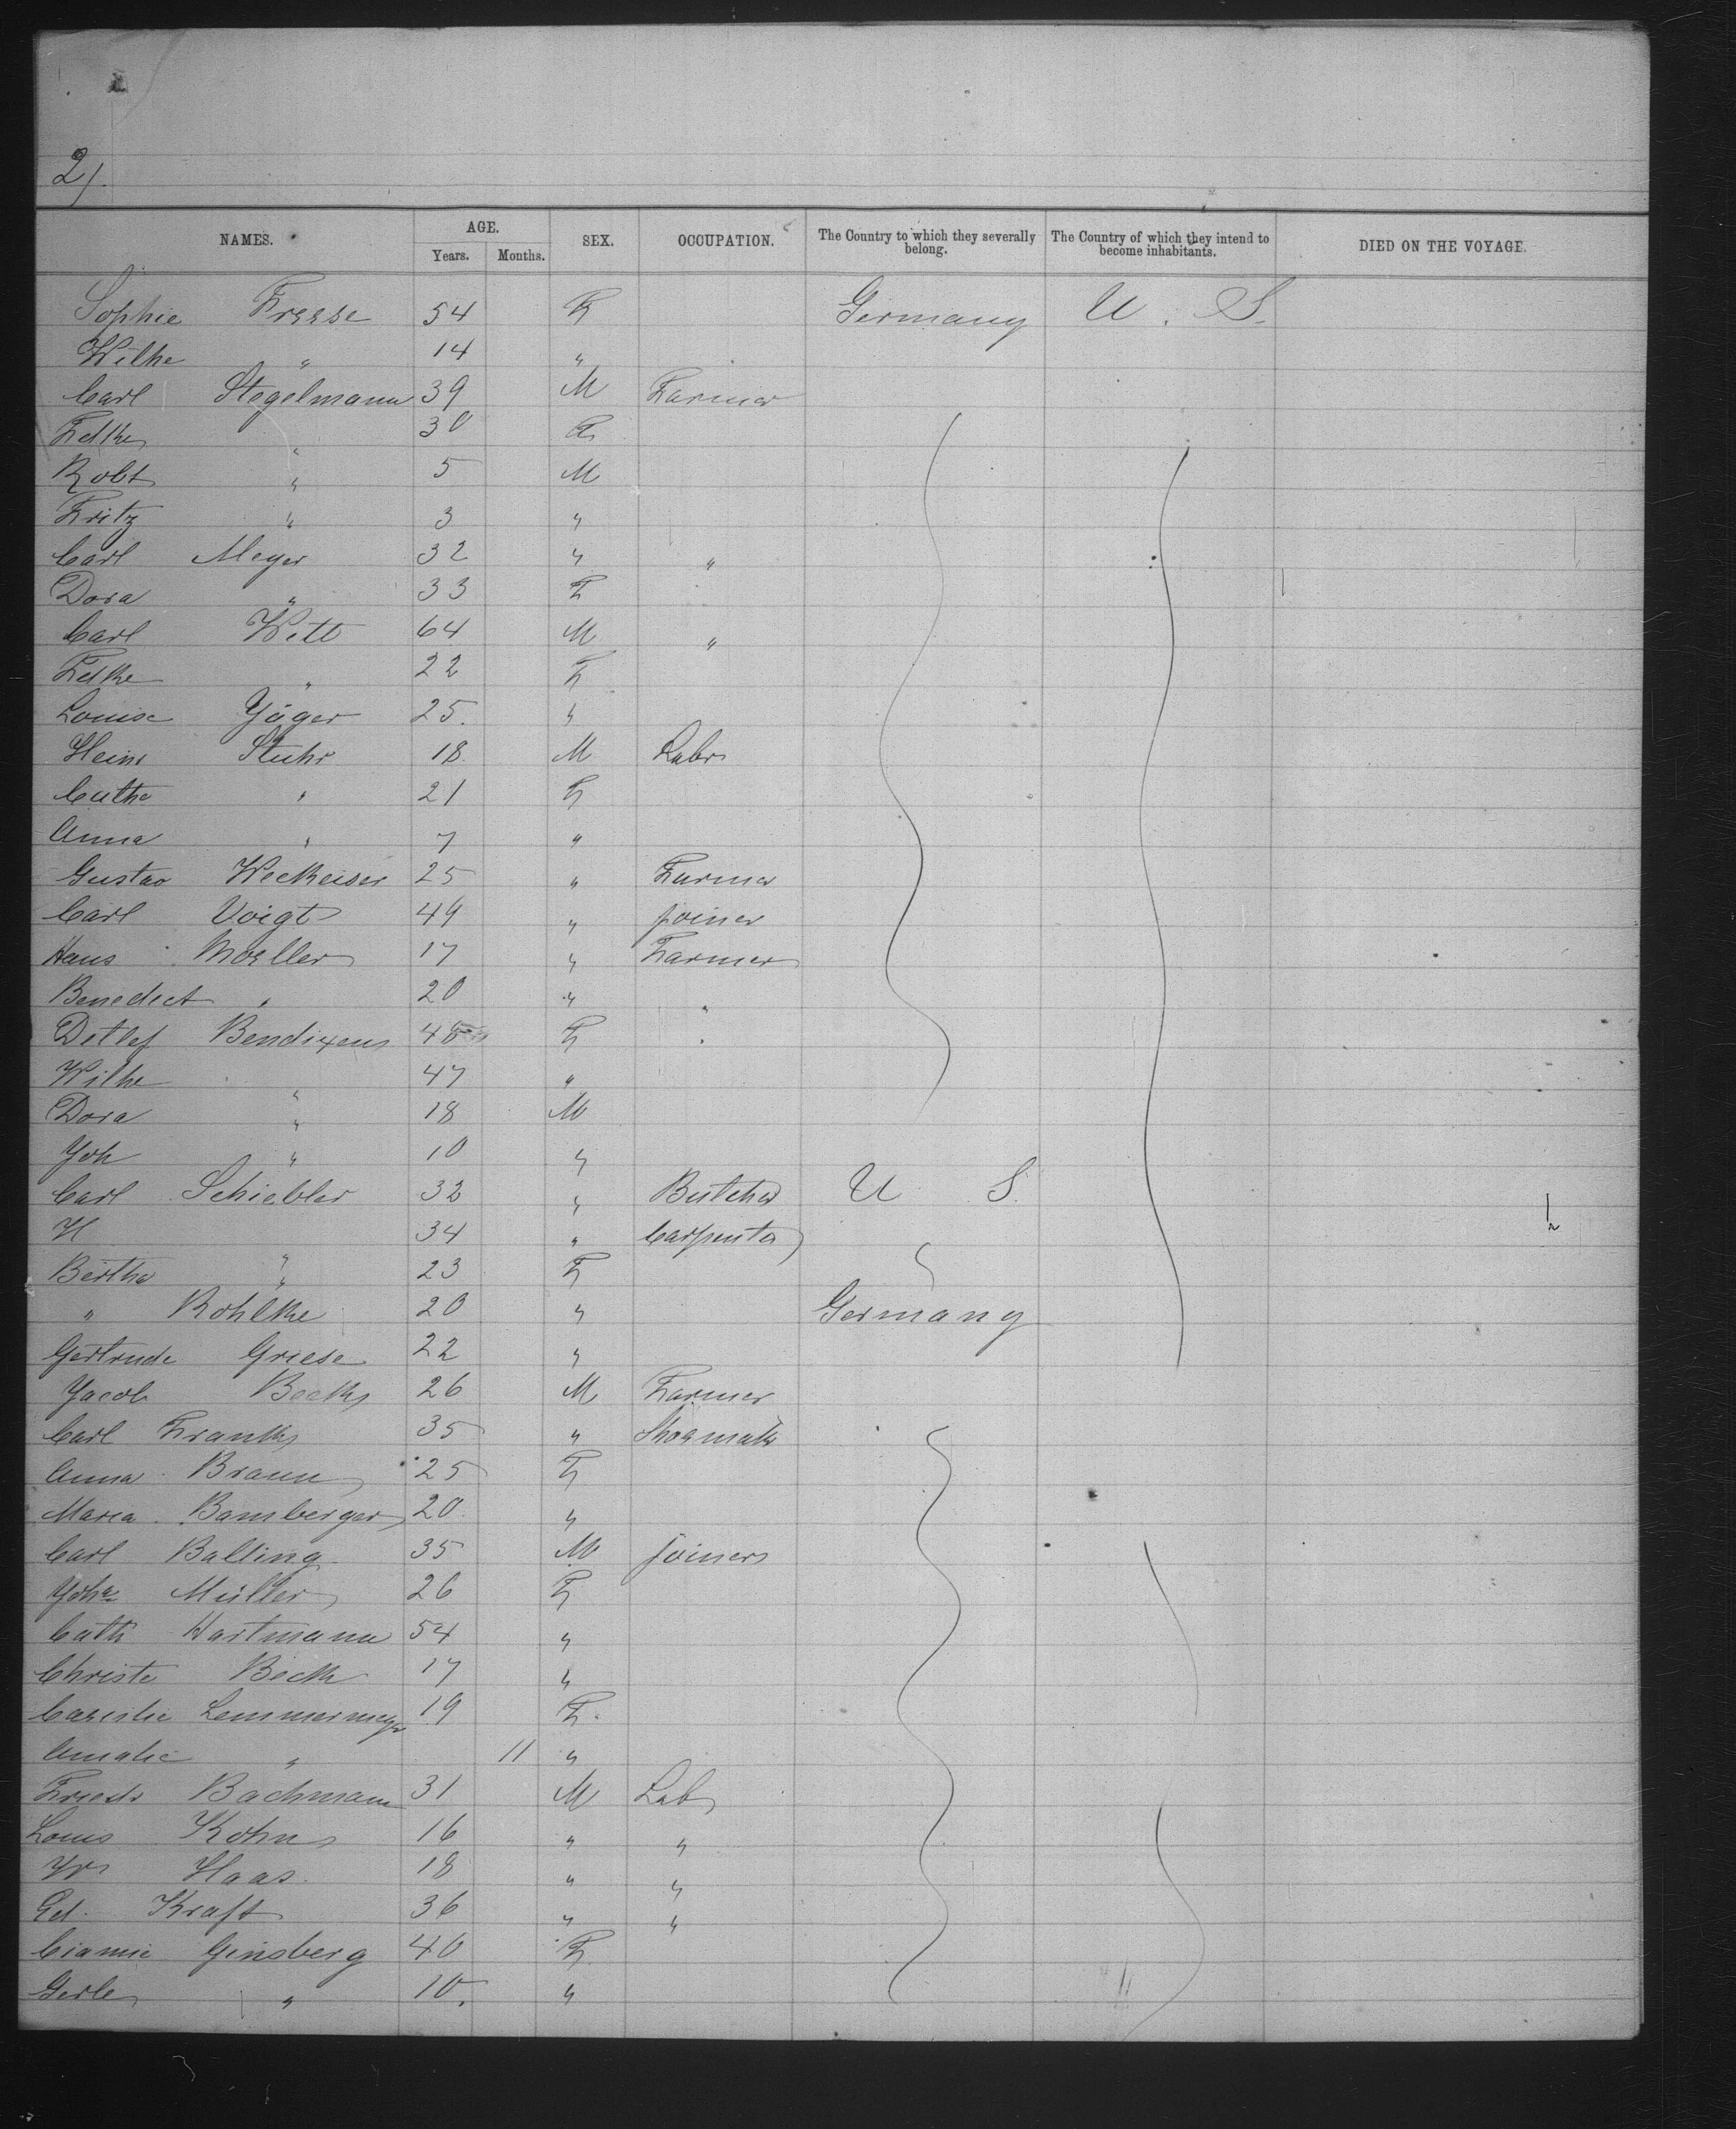 2).
NAMES. AGE. SEX. OCCUPATION. The Country to which they severally belong. The Country of which they intend to become inhabitants. DIED ON THE VOYAGE.
Years. Months.
Sophie Freese 54 F Germany U. S.
Wilhe " 14 "
Carl Stegelmann 39 M Farmer
Fdke " 30 F
Robt " 5 M
Fritz " 3 "
Carl Meyer 32 " "
Dora " 33 F
Carl Witt 64 M "
Fdke " 22 F
Louise Yäger 25. "
Heinr Stuhr 18. M Labr
Cathe " 21 F
Anna " 7 "
Gustav 25 " Farmer
Carl Voigt 49 " joiner
Hans Moeller 17 " Farmer
Benedict " 20 " "
Detlef Bendixen 48 F "
Wilhe " 47 "
Dora " 18 M
Joh " 10 "
Carl Schiebler 32 " Butcher U S.
H " 34 " Carpenter
Bertha " 23 F
" Rohlke 20 " Germany
Gertrude Griese 22 "
Jacob Beck 26 M Farmer
Carl Frank 35 " Shoemakr
Anna Braun 25 F
Maria Bamberger 20 "
Carl Balling 35 M joiner
Joha Müller 26 F
Cath Hartmann 54 "
Christe Beck 17 "
Lemmermeyer 19 F.
Amalie " 11 "
Friedr Bachmann 31 M Lab
Louis Kohn 16 " "
Wm Haas. 18 " "
Ed. Kraft 36 " "
Ginsberg 40 F
Gerle " 10. "